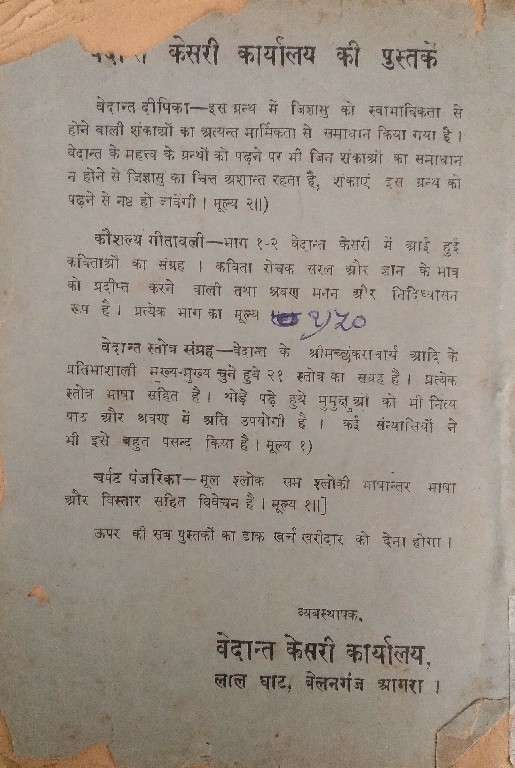 वेदान्त केसरी कार्यालय की पुस्तकें
वेदान्त दीपिका—इस ग्रन्थ में जिज्ञासु को स्वाभाविकता से
होने वाली शंकाओं का अत्यन्त मार्मिकता से समाधान किया गया है ।
वेदान्त के महत्व के ग्रन्थों को पढ़ने पर भी जिन शंकाओं का समाधान
न होने से जिज्ञासु का चित्त अशान्त रहता है, शंकाएं इस ग्रन्थ को
पढ़ने से नष्ट हो जावेंगी । मूल्य २॥)
कौशल्य गीतावली—भाग १-२ वेदान्त केसरी में आई हुई
कविताओं का संग्रह । कविता रोचक सरल और ज्ञान के भाव
को प्रदीप्त करने वाली तथा श्रवण मनन और निदिध्यासन
रूप है । प्रत्येक भाग का मूल्य १/५०
वेदान्त स्तोत्र संग्रह—वेदान्त के श्रीमच्छंकराचार्य आदि के
प्रतिभाशाली मुख्य-मुख्य चुने हुये २१ स्तोत्र का संग्रह है । प्रत्येक
स्तोत्र भाषा सहित है । थोड़े पढ़े हुये मुमुक्षुओं को भी नित्य
पाठ और श्रवण में अति उपयोगी है । कई संन्यासियों ने
भी इसे बहुत पसन्द किया है । मूल्य १)
चर्पट पंजरिका—मूल श्लोक सम श्लोकी भाषान्तर भाषा
और विस्तार सहित विवेचन है । मूल्य १॥]
ऊपर की सब पुस्तकों का डाक खर्च खरीदार को देना होगा ।
व्यवस्थापक,
वेदान्त केसरी कार्यालय,
लाल घाट, बेलनगंज आगरा ।